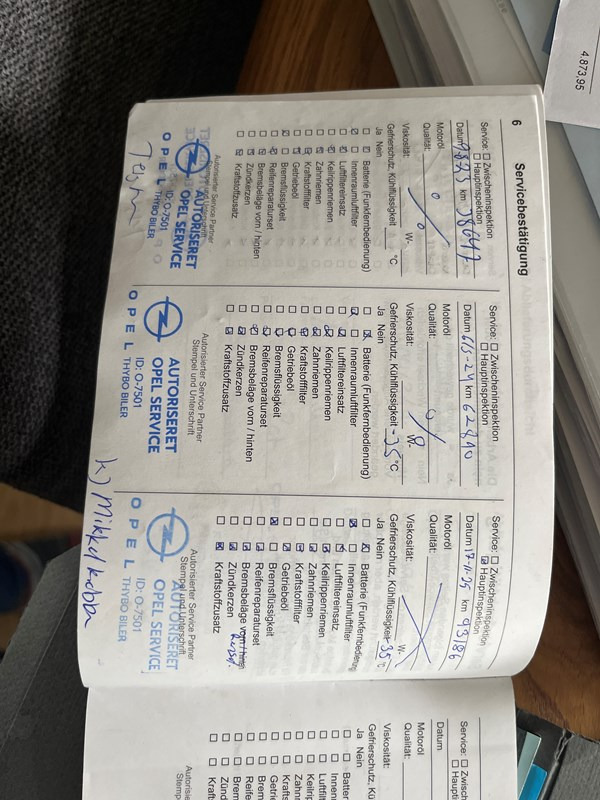 4.873,95
6
Servicebestätigung
Service: ☐ Zwischeninspektion
☐ Hauptinspektion
Datum km 38647
Motoröl
Qualität:
Viskosität: W-
Gefrierschutz, Kühlflüssigkeit °C
Ja Nein
Batterie (Funkfernbedienung)
Innenraumluftfilter
Luftfiltereinsatz
Keilrippenriemen
Zahnriemen
Kraftstofffilter
Getriebeöl
Bremsflüssigkeit
Reifenreparaturset
Bremsbeläge vorn / hinten
Zündkerzen
Kraftstoffzusatz
Autorisierter Service Partner
Stempel und Unterschrift
AUTORISERET
OPEL SERVICE
OPEL
ID: O-7501
THYBO BILER
Service: ☐ Zwischeninspektion
☐ Hauptinspektion
Datum 6/5-24 km 62810
Motoröl
Qualität:
Viskosität: W-
Gefrierschutz, Kühlflüssigkeit -35 °C
Ja Nein
Batterie (Funkfernbedienung)
Innenraumluftfilter
Luftfiltereinsatz
Keilrippenriemen
Zahnriemen
Kraftstofffilter
Getriebeöl
Bremsflüssigkeit
Reifenreparaturset
Bremsbeläge vorn / hinten
Zündkerzen
Kraftstoffzusatz
Autorisierter Service Partner
Stempel und Unterschrift
AUTORISERET
OPEL SERVICE
OPEL
ID: O-7501
THYBO BILER
Service: ☐ Zwischeninspektion
☒ Hauptinspektion
Datum 17-11-25 km 93186
Motoröl
Qualität:
Viskosität: W-
Gefrierschutz, Kühlflüssigkeit -35 °C
Ja Nein
Batterie (Funkfernbedienung)
Innenraumluftfilter
Luftfiltereinsatz
Keilrippenriemen
Zahnriemen
Kraftstofffilter
Getriebeöl
Bremsflüssigkeit
Reifenreparaturset
Bremsbeläge vorn / hinten
Zündkerzen
Kraftstoffzusatz
Autorisierter Service Partner
Stempel und Unterschrift
AUTORISERET
OPEL SERVICE
OPEL
ID: O-7501
THYBO BILER
Service: ☐ Zwisch
☐ Haupti
Datum
Motoröl
Qualität:
Viskosität:
Gefrierschutz, Kü
Ja Nein
Batter
Innen
Luftfil
Keilrip
Zahnr
Krafts
Getrie
Brem
Reife
Brem
Zünd
Kraft
Autoris
Stemp